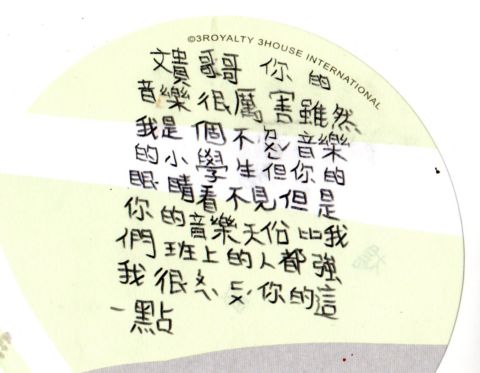 ©3ROYALTY 3HOUSE INTERNATIONAL
文貴哥哥 你的
音樂很厲害雖然
我是個不音樂
的小學生但你的
眼睛看不見但是
你的音樂天俗比我
們班上的人都強
我很你的這
一點